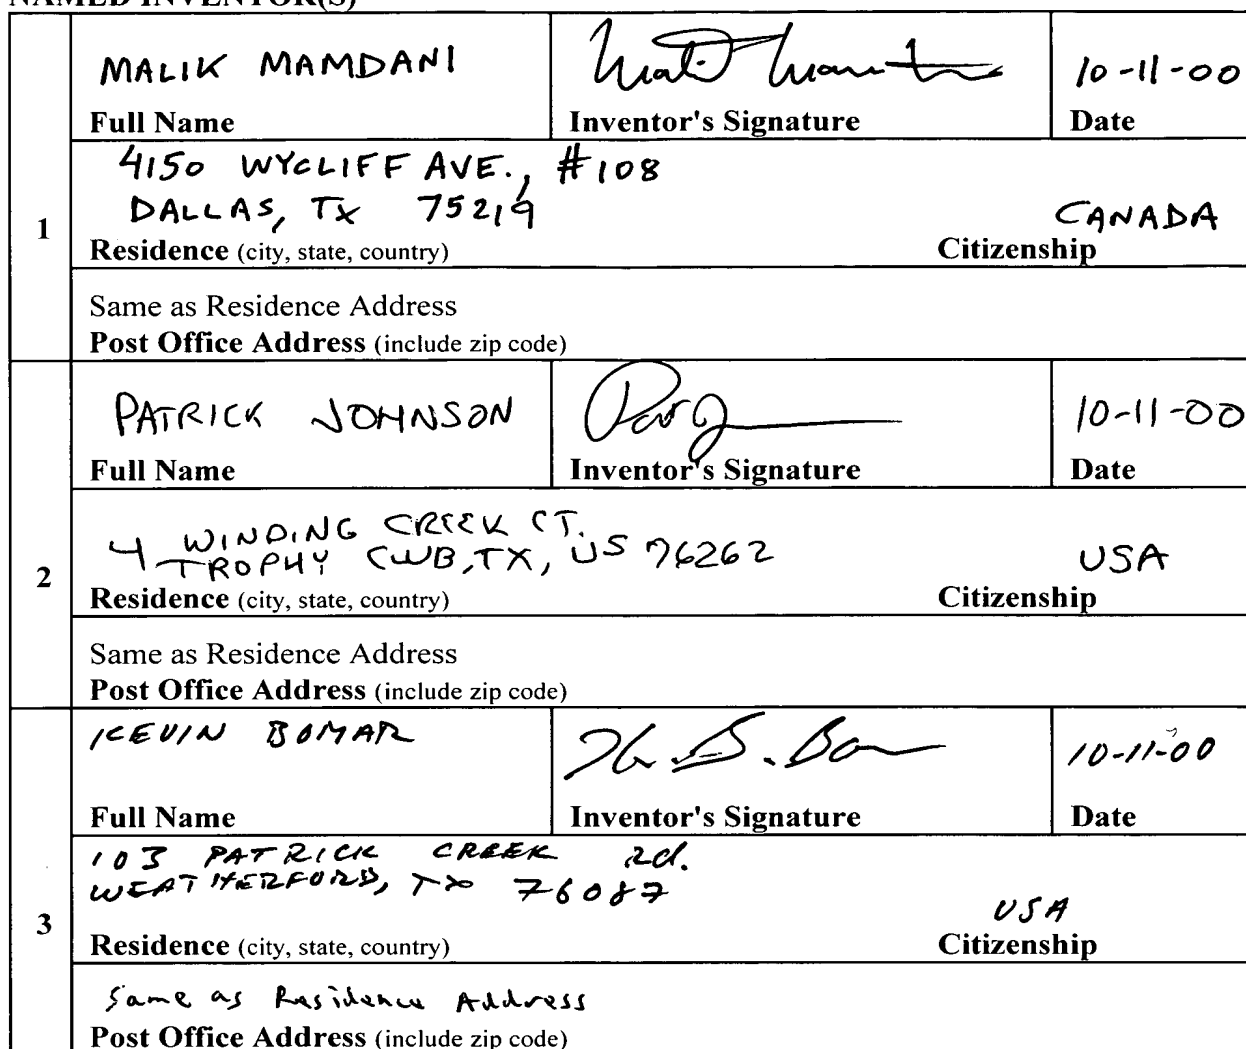 NAMED INVENTOR(S)
MALIK MAMDANI
10-11-00
Full Name Inventor's Signature Date
1
4150 WYCLIFF AVE., #108
DALLAS, TX 75219 CANADA
Residence (city, state, country) Citizenship
Same as Residence Address
Post Office Address (include zip code)
PATRICK JOHNSON
10-11-00
Full Name Inventor's Signature Date
2
4 WINDING CREEK CT.
TROPHY CLUB, TX, US 76262 USA
Residence (city, state, country) Citizenship
Same as Residence Address
Post Office Address (include zip code)
KEVIN BOMAR
10-11-00
Full Name Inventor's Signature Date
3
103 PATRICK CREEK Rd.
WEATHERFORD, TX 76087 USA
Residence (city, state, country) Citizenship
Same as Residence Address
Post Office Address (include zip code)